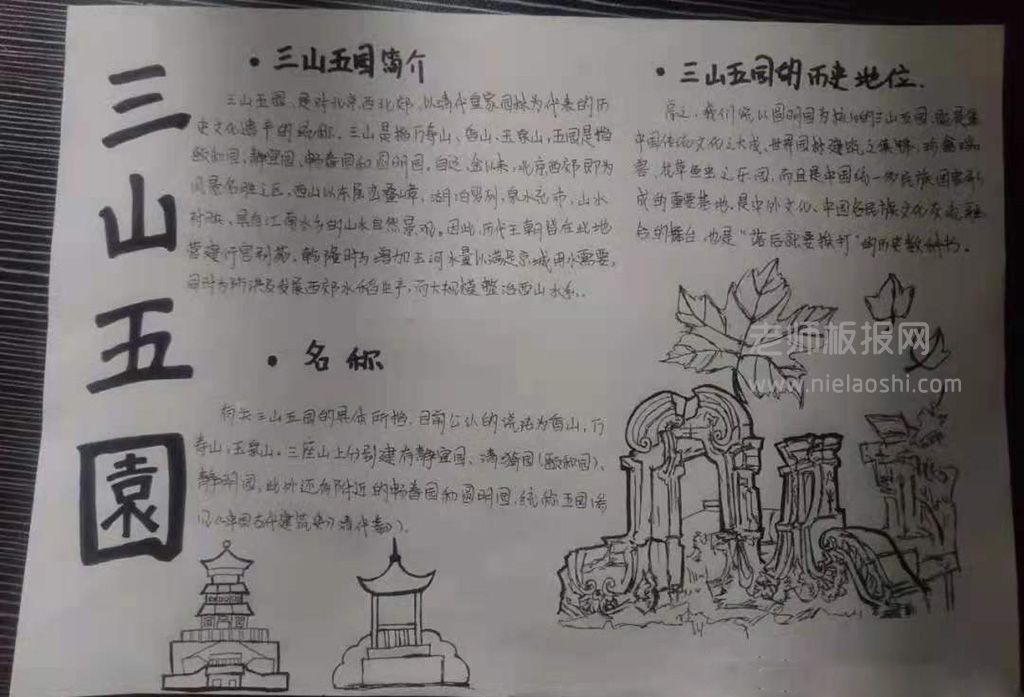 三山五園
• 三山五园简介
三山五园，是对北京西北郊、以清代皇家园林为代表的历
史文化遗产的统称。三山是指万寿山、香山、玉泉山，五园是指
颐和园、静宜园、畅春园和圆明园。自辽、金以来，北京西郊即为
风景名胜之区，西山以东层峦叠嶂，湖泊罗列，泉水充沛，山水
衬映，具有江南水乡的山水自然景观。因此，历代王朝皆在此地
营建行宫别苑。乾隆时为增加玉河水量以满足京城用水需要，
同时为防洪及发展西郊水稻生产，而大规模整治西山水系。
• 名称
构去三山五园的具体所指，目前公认的说法为香山，万
寿山，玉泉山。三座山上分别建有静宜园、清漪园（颐和园）、
静明园，此外还有附近的畅春园和圆明园，统称五园
《中国古代建筑史》清代卷）。
• 三山五园的历史地位.
总之，我们说以圆明园为核心的三山五园，既是集
中国传统文化之大成、世界园林建筑之
客、花草鱼虫之乐园，而且是中国统一多民族国家形
成的重要基地，是中外文化、中国各民族文化交流融
合的舞台，也是“落后就要挨打”的历史教科书。
老师板报网
www.nielaoshi.com